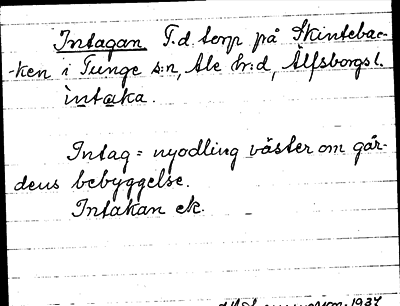 Intagan T.d torp på Skintebac-
-ken i Tunge s:n, Ale hr:d, Älfsborgs l.
intaka.
Intag = nyodling väster om går-
dens bebyggelse.
Intakan ek.
1937